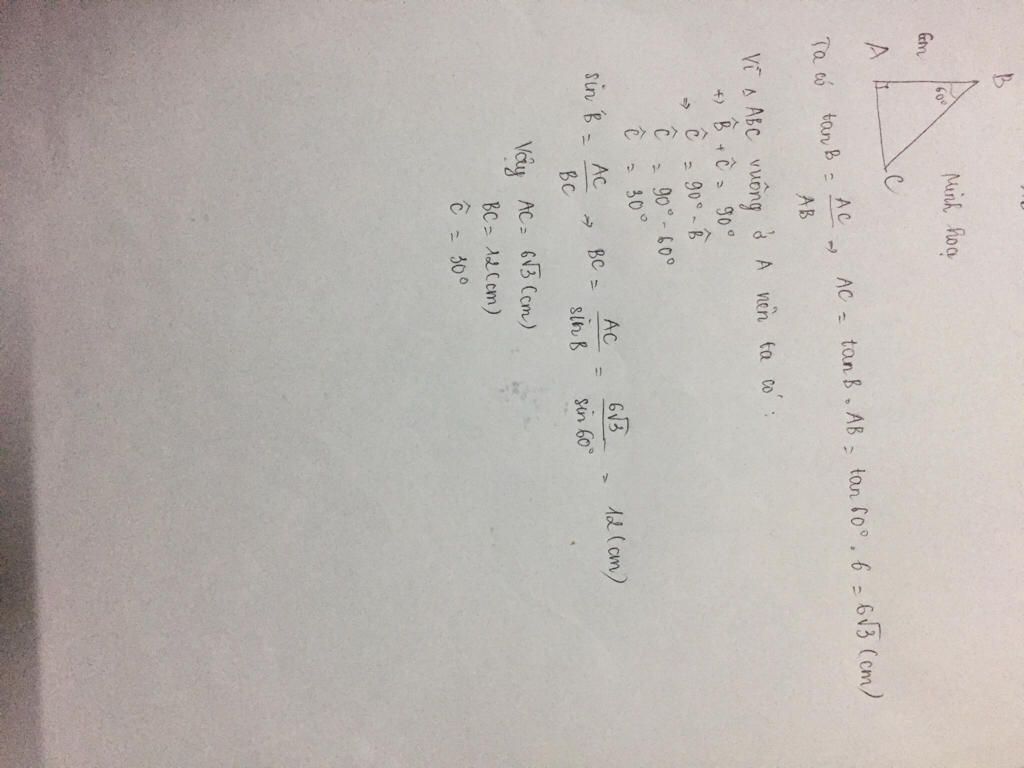 B
60°
6m
A
C
Minh hoạ
Ta có tanB = AC/AB => AC = tanB . AB = tan60° . 6 = 6√3 (cm)
Vì △ ABC vuông ở A nên ta có :
B̂ + Ĉ = 90°
=> Ĉ = 90° - B̂
Ĉ = 90° - 60°
Ĉ = 30°
sin B̂ = AC/BC => BC = AC/sinB = 6√3/sin60° = 12 (cm)
Vậy AC = 6√3 (cm)
BC = 12 (cm)
Ĉ = 30°